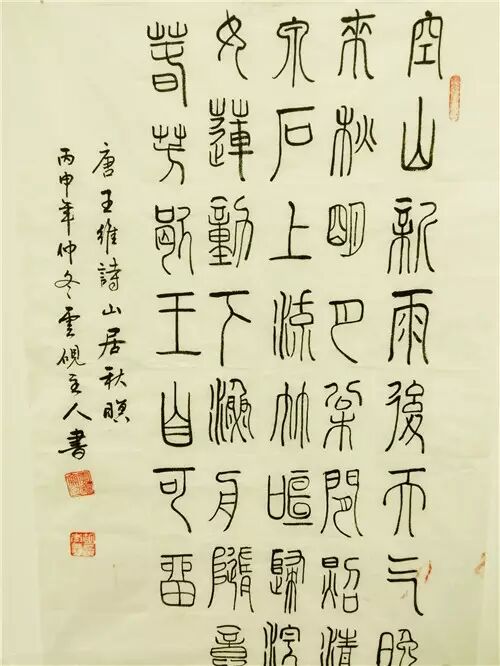 空山新雨後天气晚
來秋明月松間照清
泉石上流竹喧歸浣
女蓮動下漁舟隨意
春芳歇王自可留
唐王維詩山居秋暝
丙申年仲冬雲硯主人書